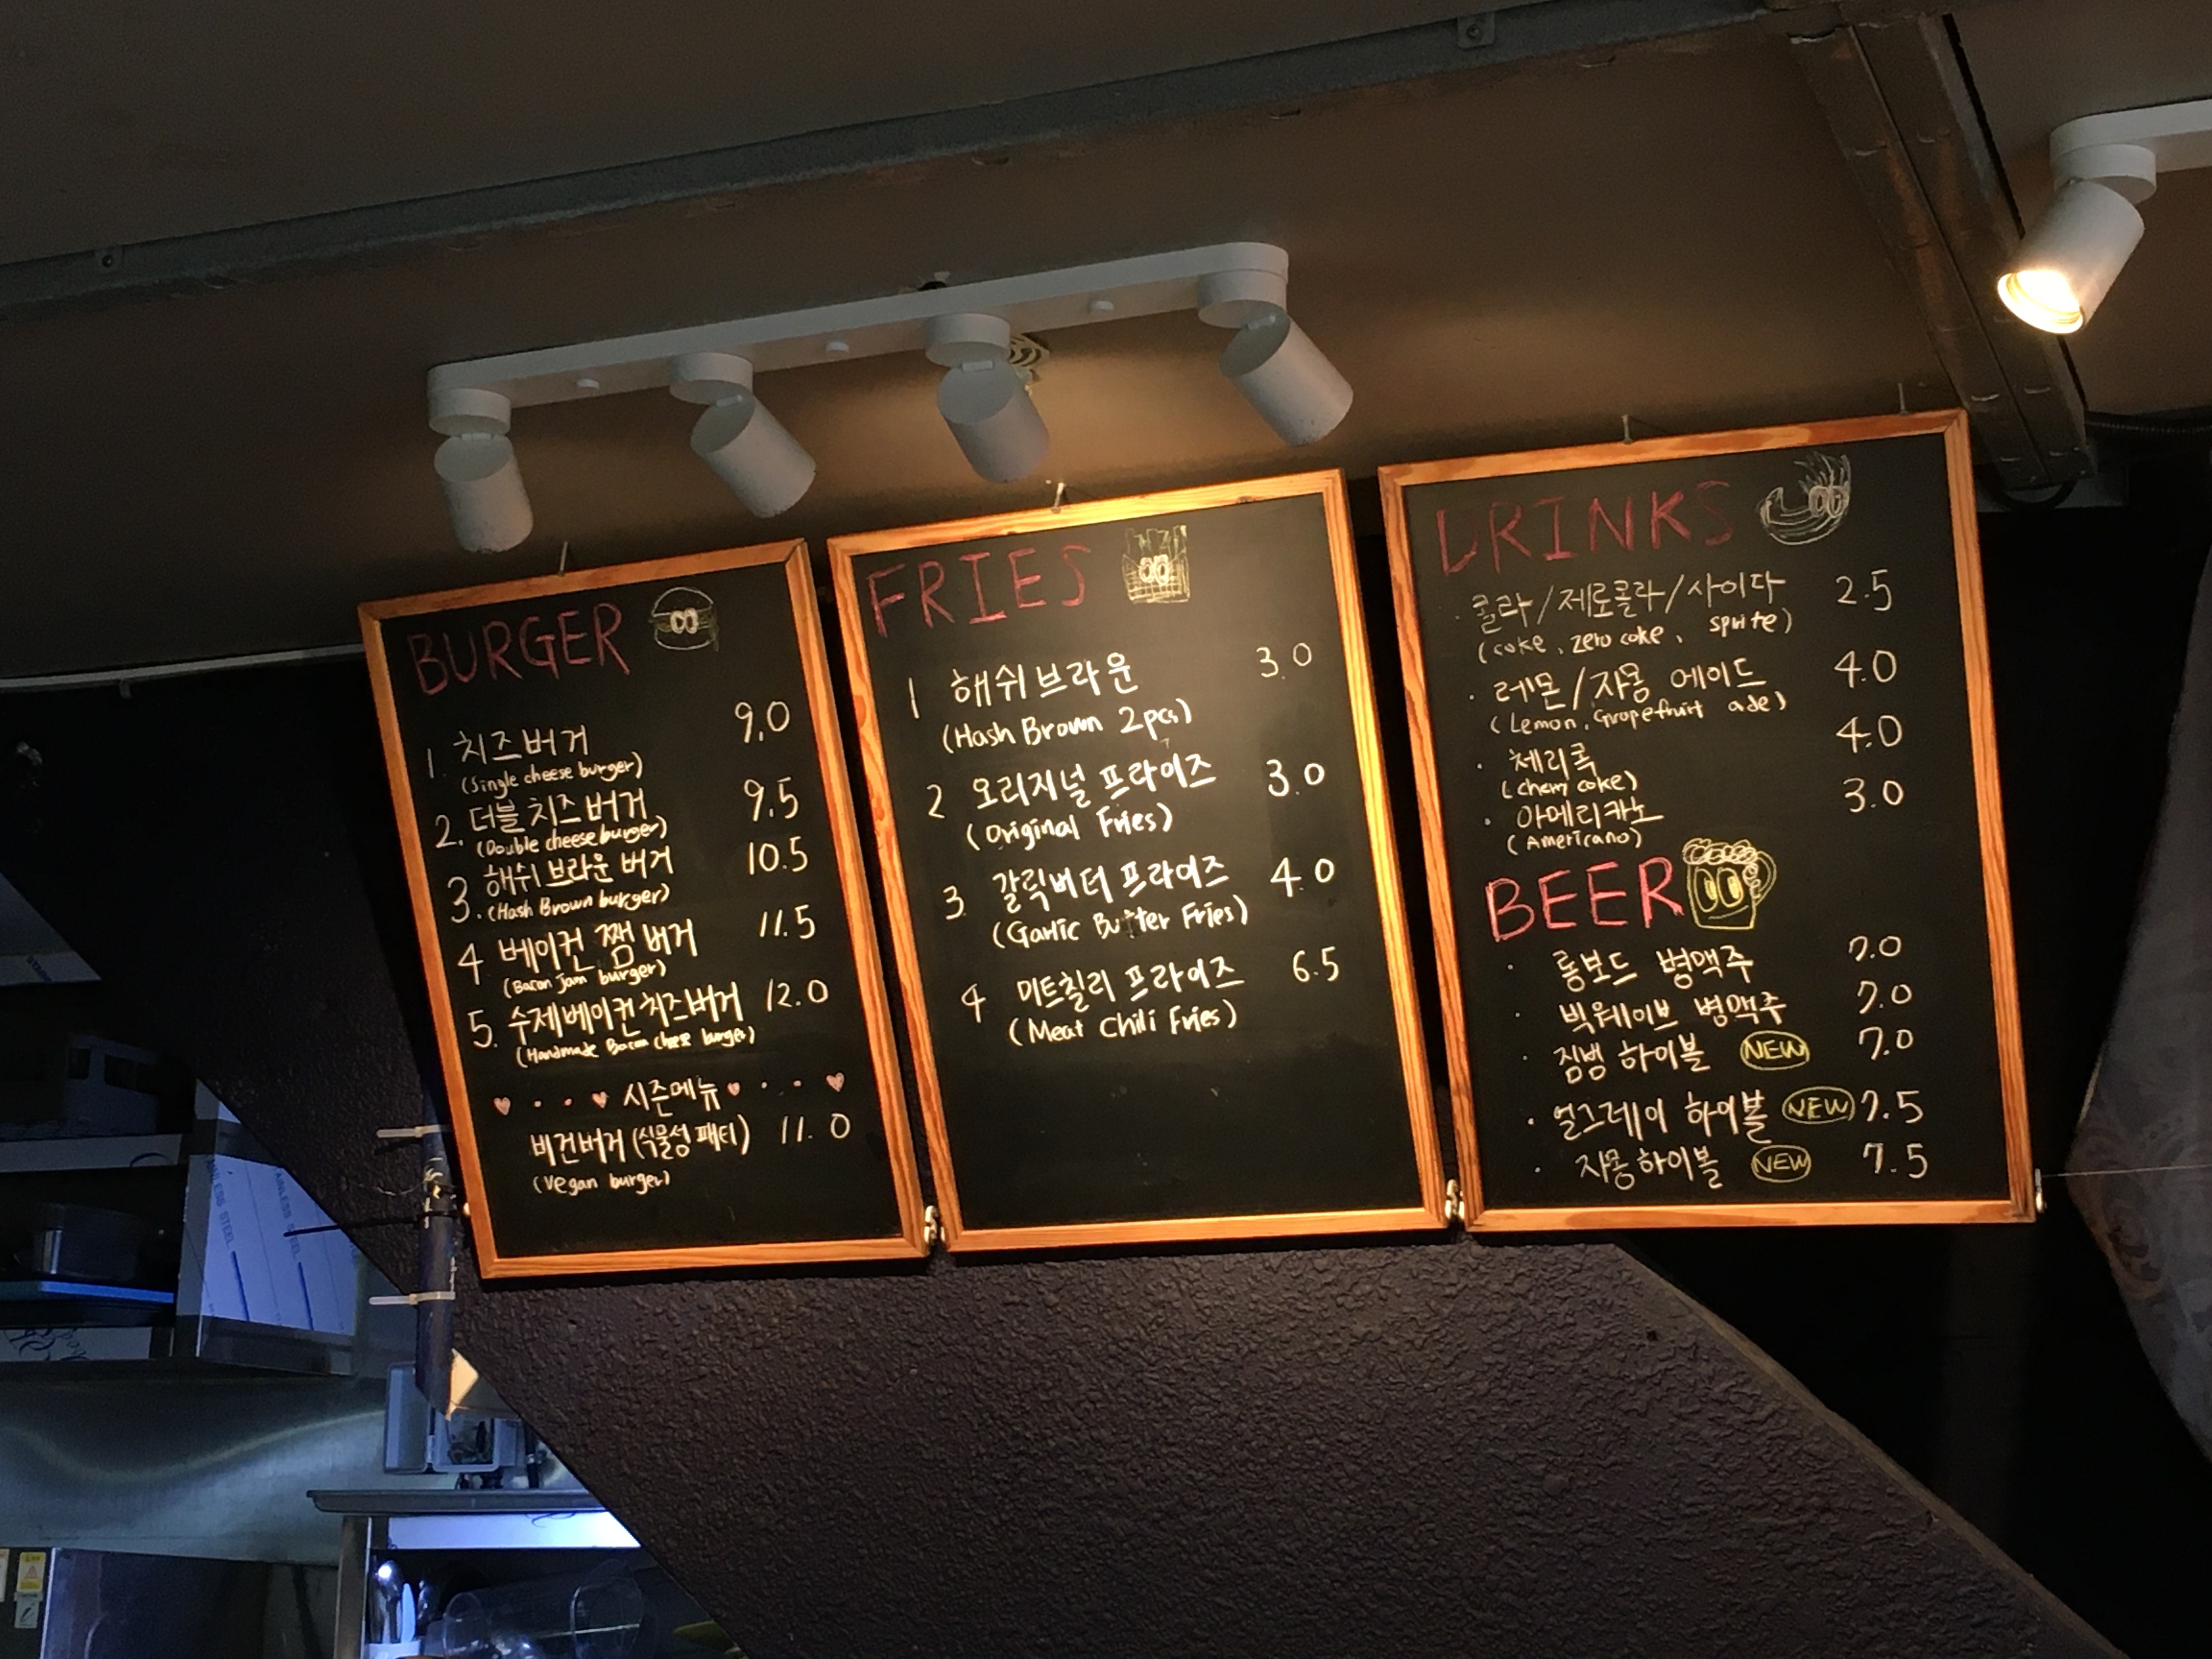 BURGER
1. 치즈버거 9.0
(Single cheese burger)
2. 더블 치즈버거 9.5
(Double cheese burger)
3. 해쉬 브라운 버거 10.5
(Hash Brown burger)
4 베이컨 쨈 버거 11.5
(Bacon Jam burger)
5. 수제베이컨 치즈버거 12.0
(Handmade Bacon cheese burger)
시즌메뉴
비건버거 (식물성 패티) 11.0
(Vegan burger)
FRIES
1 해쉬브라운 3.0
(Hash Brown 2pcs)
2 오리지널 프라이즈 3.0
(Original Fries)
3 갈릭버터 프라이즈 4.0
(Garlic Butter Fries)
4 미트칠리 프라이즈 6.5
(Meat Chili Fries)
DRINKS
· 콜라/제로콜라/사이다 2.5
(coke, zero coke, sprite)
· 레몬/자몽 에이드 4.0
(Lemon, Grapefruit ade)
· 체리콕 4.0
(cherry coke)
· 아메리카노 3.0
(Americano)
BEER
· 롱보드 병맥주 7.0
· 빅웨이브 병맥주 7.0
· 짐빔 하이볼 NEW 7.0
· 얼그레이 하이볼 NEW 7.5
· 자몽하이볼 NEW 7.5